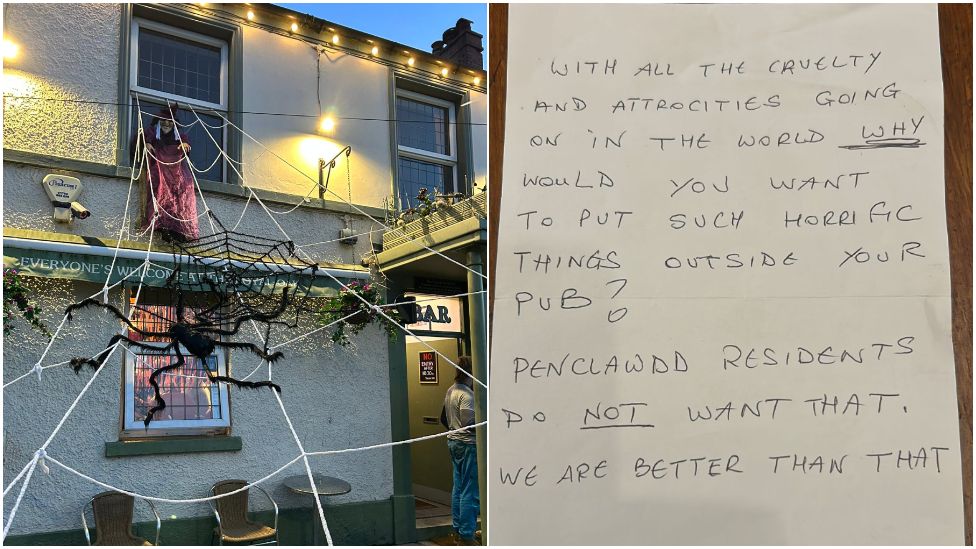 EVERYONE'S WELCOME AT THE ROYAL OAK
BAR
NO
ENTRY
AFTER
WITH ALL THE CRUELTY
AND ATTROCITIES GOING
ON IN THE WORLD WHY
WOULD YOU WANT
TO PUT SUCH HORRIFIC
THINGS OUTSIDE YOUR
PUB?
PENCLAWDD RESIDENTS
DO NOT WANT THAT.
WE ARE BETTER THAN THAT